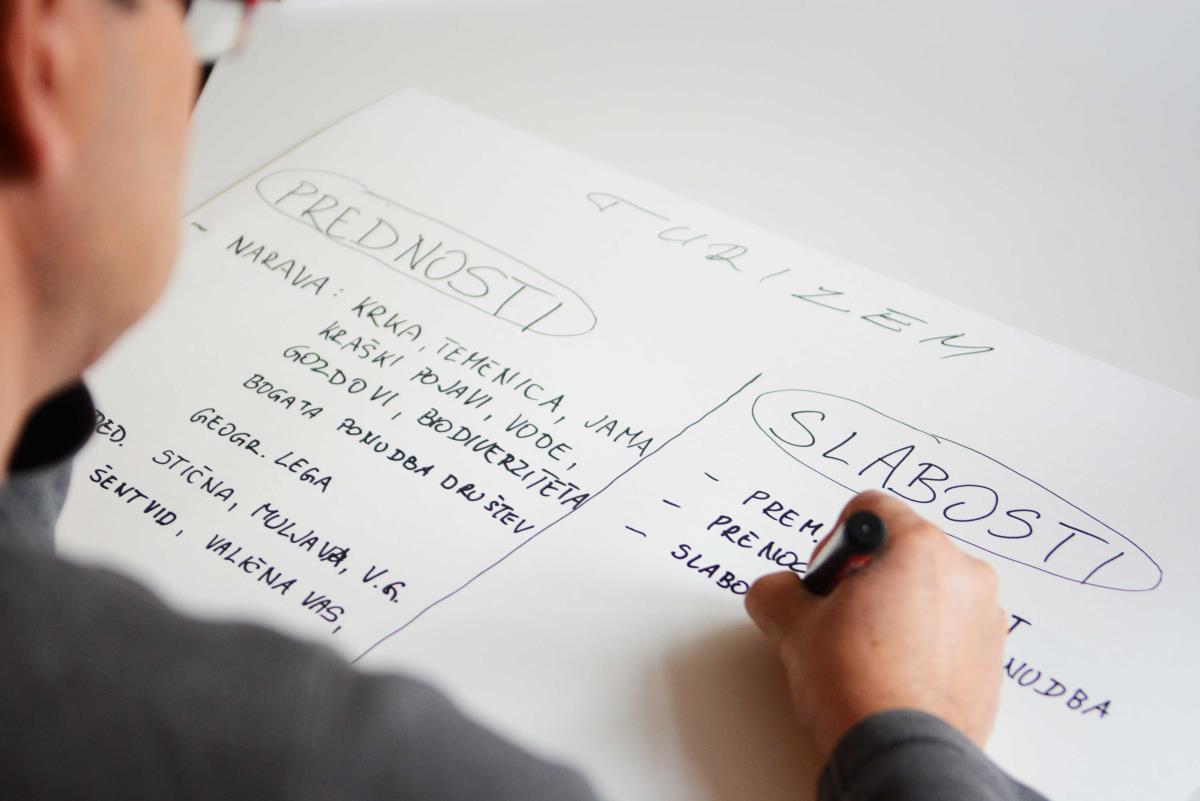 TURIZEM
PREDNOSTI
- NARAVA: KRKA, TEMENICA, JAMA
KRAŠKI POJAVI, VODE,
GOZDOVI, BIODIVERZITETA
BOGATA PONUDBA DRUŠTEV
GEOGR. LEGA
DED. STIČNA, MULJAVA, V.G.
ŠENTVID, VALIČNA VAS,
SLABOSTI
- PREM.
- PRENOC
- SLABO
NUDBA